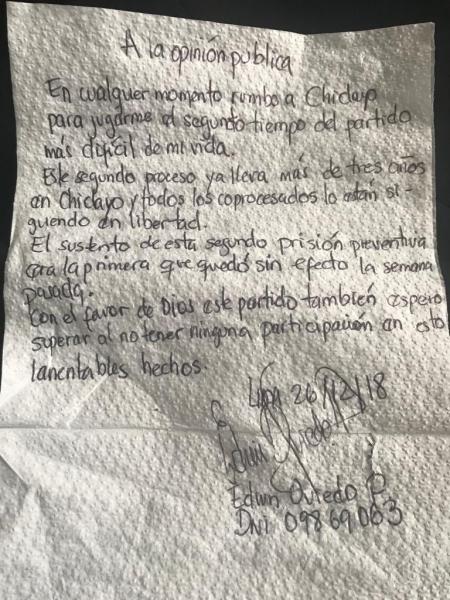 A la opinión publica
En cualquer momento rumbo a Chiclayo
para jugarme el segundo tiempo del partido
más difícil de mi vida.
Este segundo proceso ya lleva más de tres años
en Chiclayo y todos los coprocesados lo están si-
guendo en libertad.
El sustento de esta segundo prisión preventiva
era la primera que quedó sin efecto la semana
pasada.
Con el favor de Dios este partido también espero
superar al no tener ninguna participación en esto
lamentables hechos.
Lima 26/12/18
Edwin Oviedo
Edwin Oviedo P.
DNI 09869063